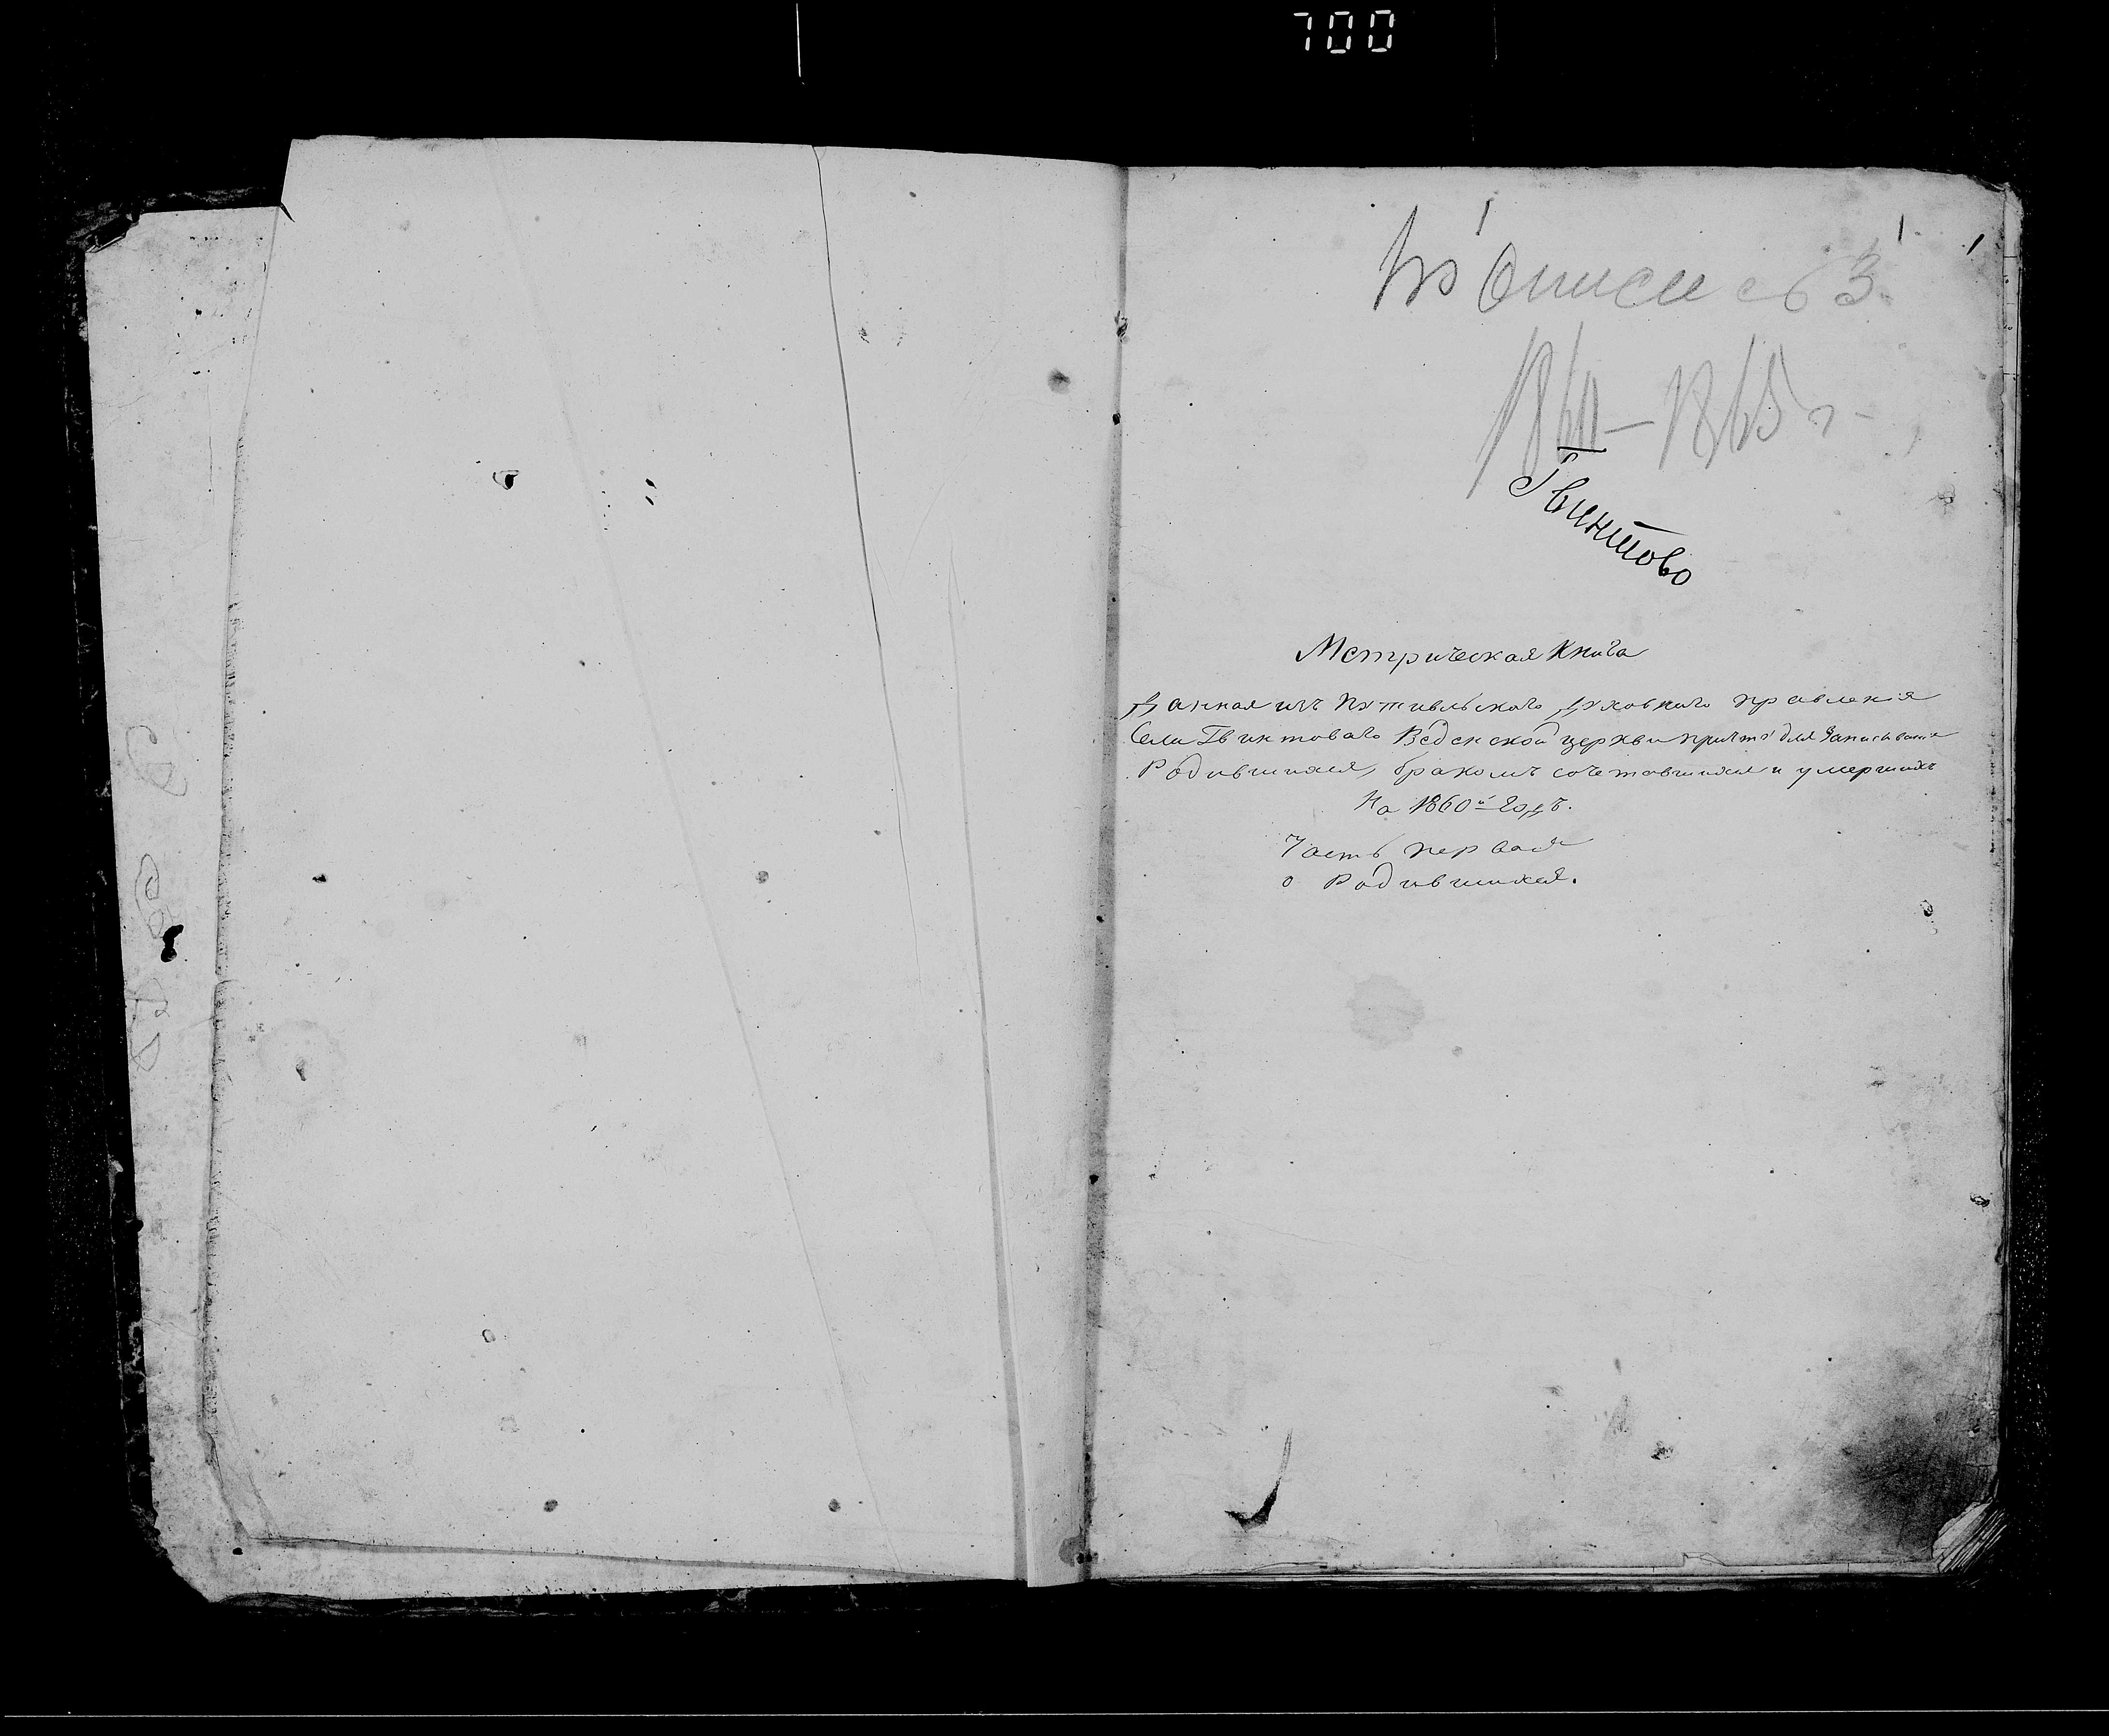 700
1 1 1
По описи № 3.
1860–1865 г.
Гвинтово
Метрическая Книга
Данная изъ Путивльского Духовнаго правленія
Села Гвинтоваго Введенской церкви причту для Записыванія
Родившихся, бракомъ сочетавшихся и умершихъ
На 1860й Годъ.
Часть первая
о Родившихся.